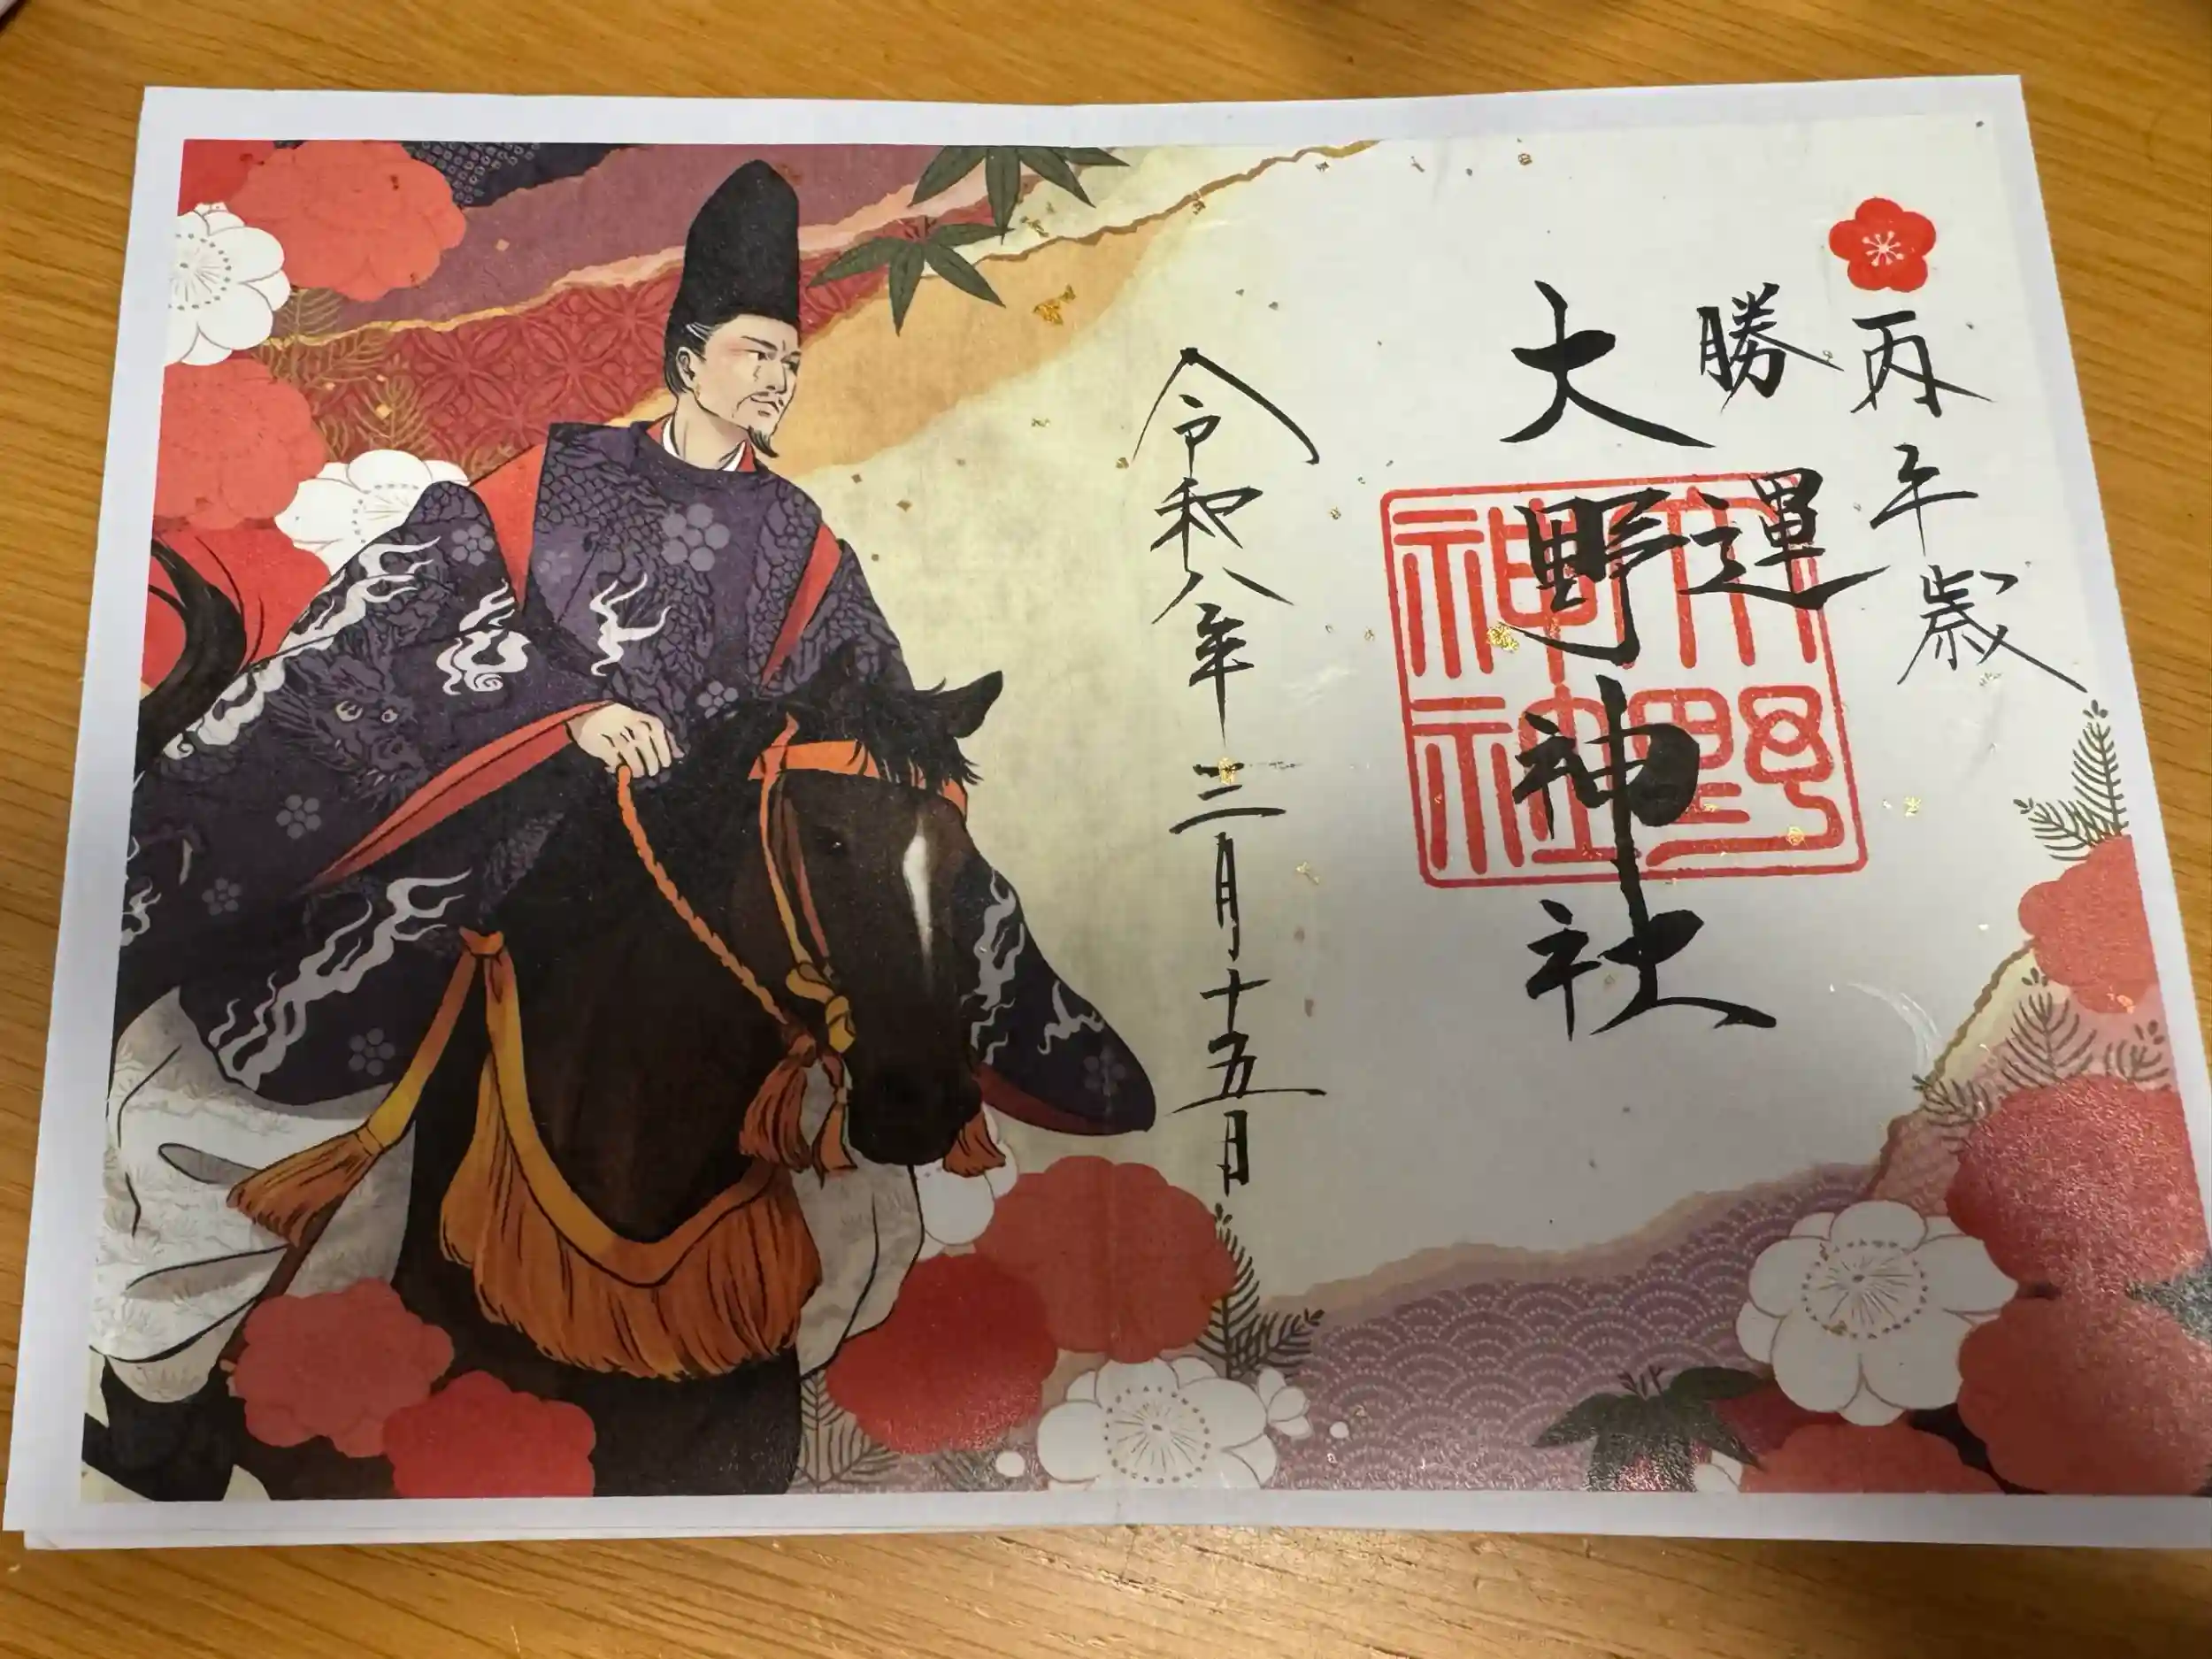 丙午歳
勝運
大野神社
大野神社
令和八年三月十五日